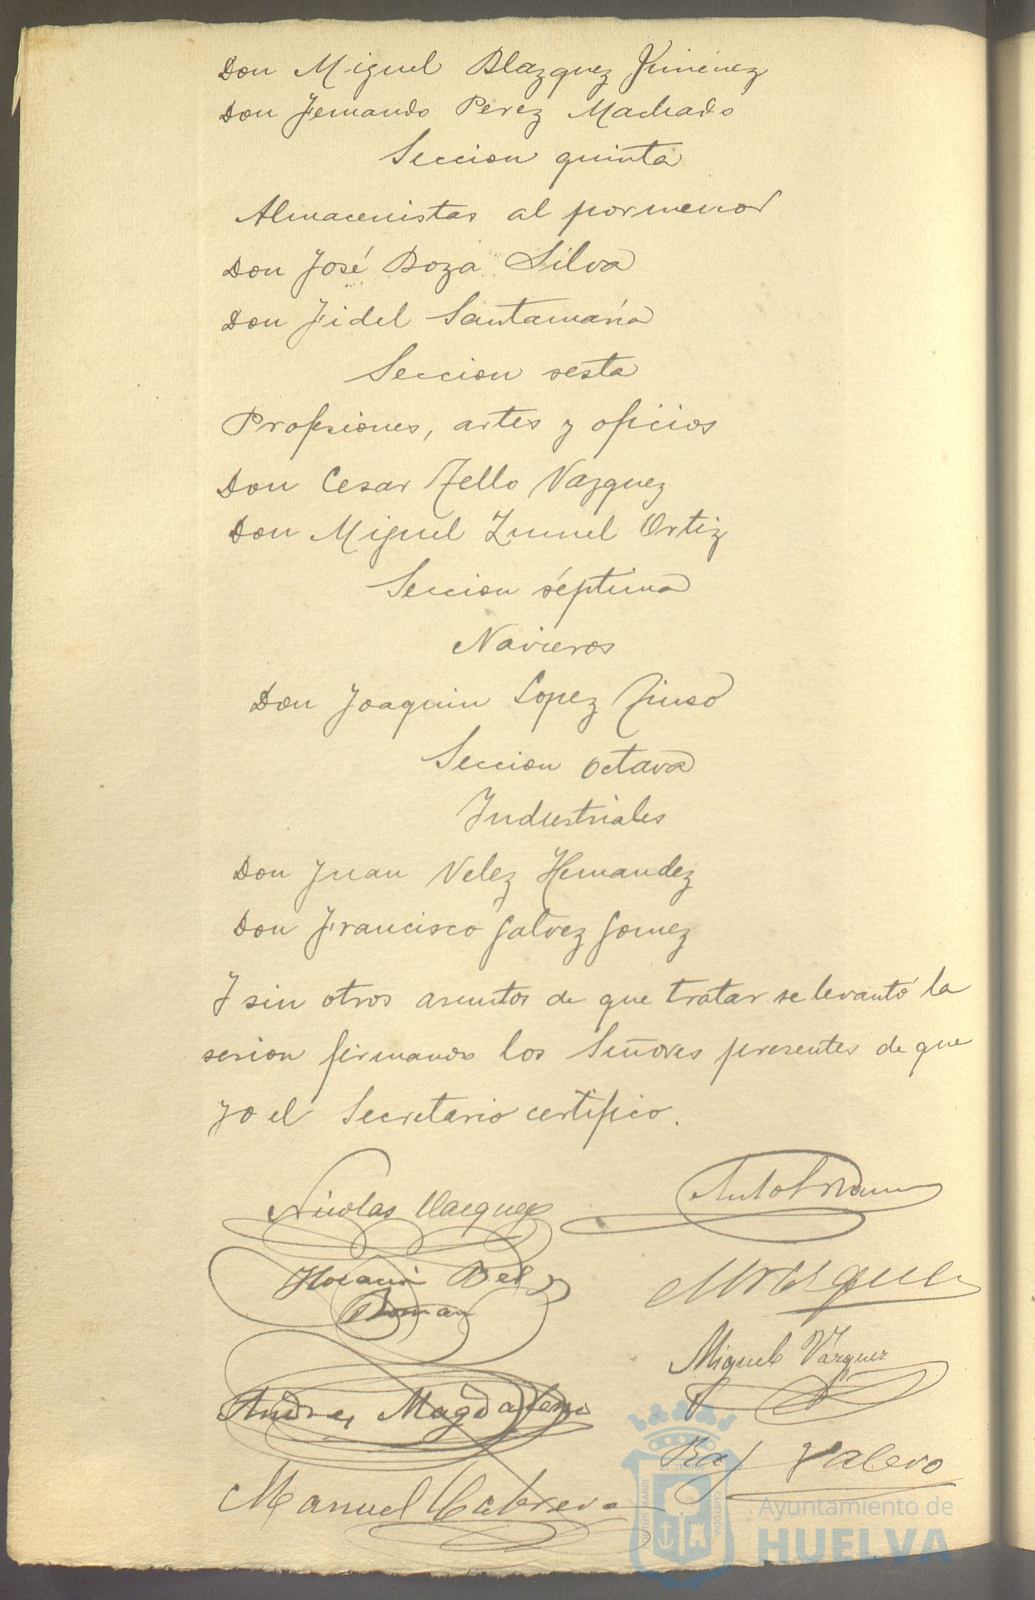 Don Miguel Blazquez Jimenez
Don Fernando Perez Machado
Seccion quinta
Almacenistas al pormenor
Don José Boza Silva
Don Fidel Santamaria
Seccion sesta
Profesiones, artes y oficios
Don Cesar Tello Vazquez
Don Miguel Ortiz
Seccion séptima
Navieros
Don Joaquin Lopez
Seccion octava
Industriales
Don Juan Velez Hernandez
Don Francisco Galvez Gomez
Y sin otros asuntos de que tratar se levantó la
sesion firmando los Señores presentes de que
yo el Secretario certifico.
Nicolas Vazquez
Horacio Bel
Roman
Miguel Vázquez
Andres Magdaleno
Raf Valero
Manuel Cabrera
Ayuntamiento de
HUELVA